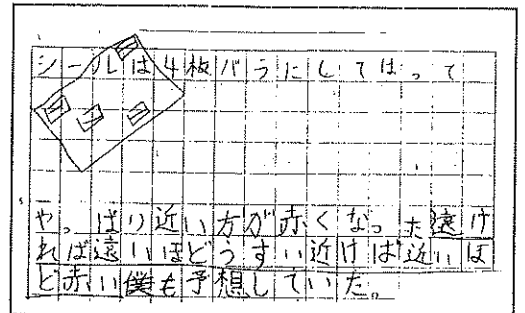 シールは4枚バラにしてはって
やっぱり近い方が赤くなった遠け
れば遠いほどうすい近ければ近いほ
ど赤い僕も予想していた。